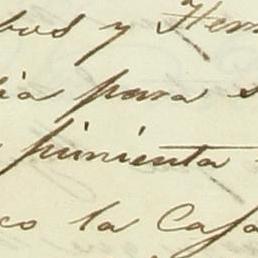 y Her
para
pimienta
co la Casa